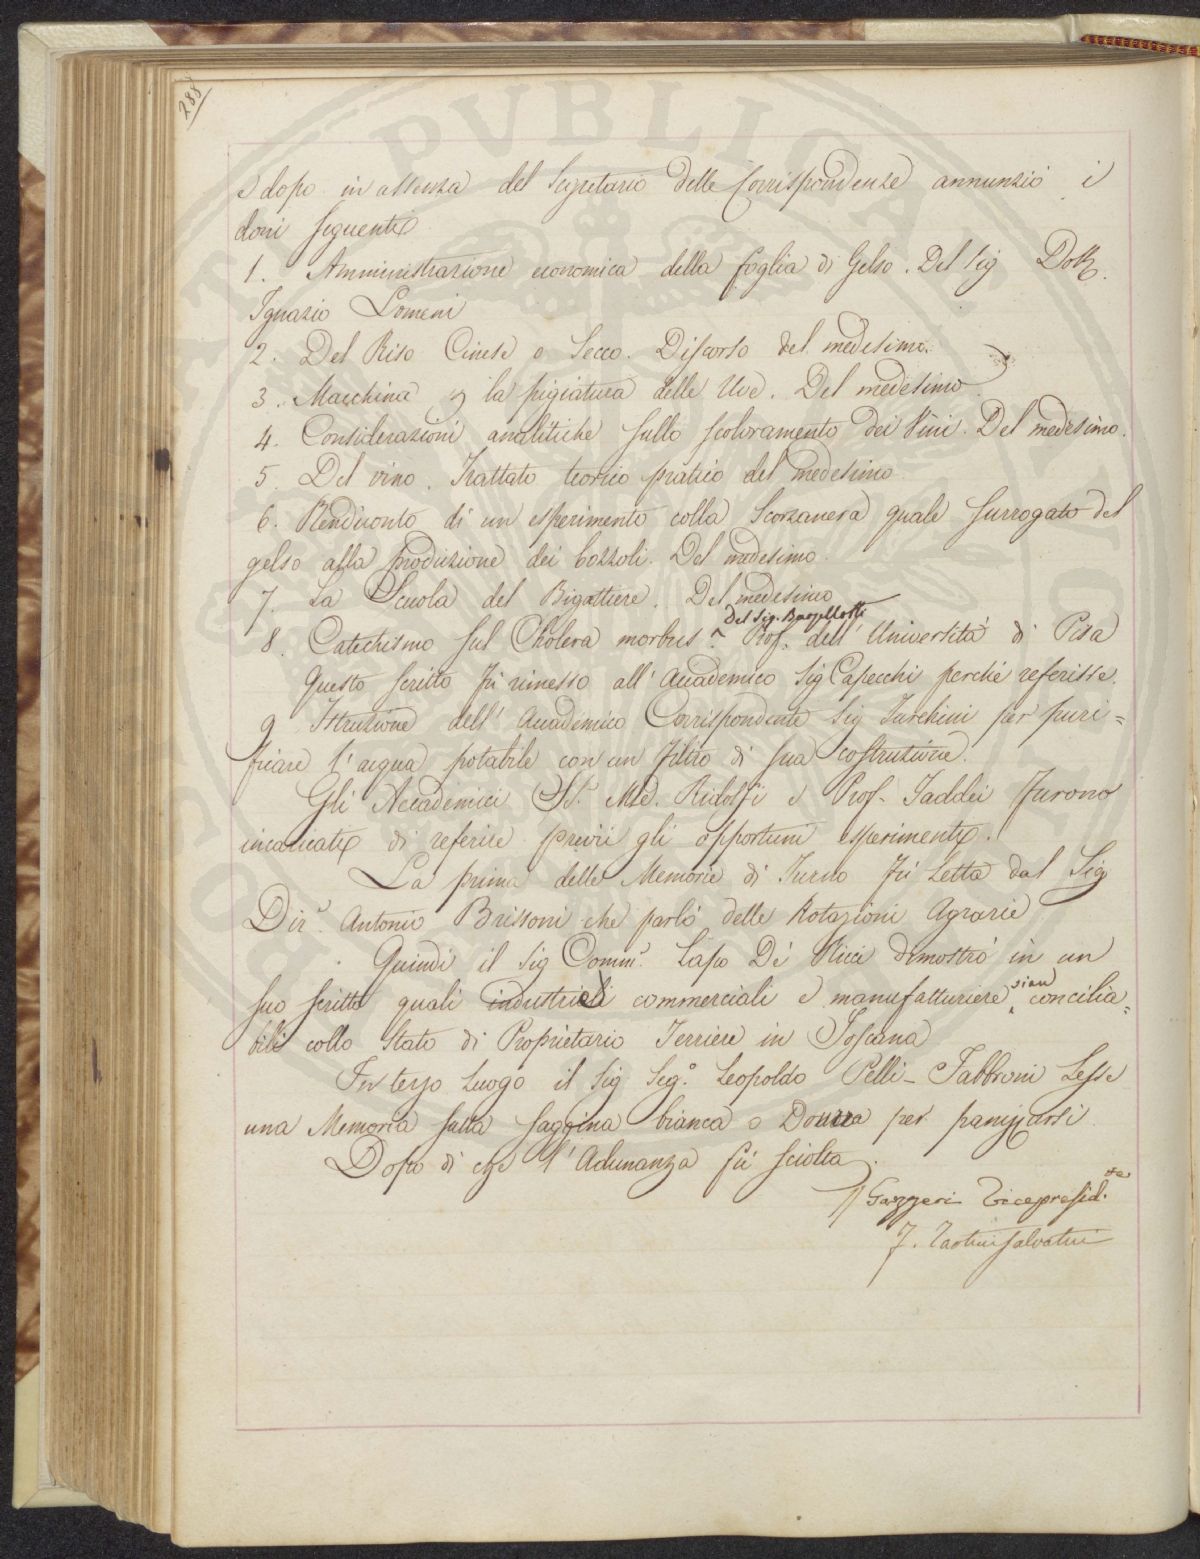 288
e dopo in assenza del Segretario delle Corrispondenze annunziò i
doni seguenti
1. Amministrazione economica della foglia di Gelso. Del Sig Dott.
Ignazio Lomeni
2. Del Riso Cinese o Secco. Discorso del medesimo.
3. Macchina la pigiatura delle Uve. Del medesimo
4. Considerazioni analitiche sullo scoloramento dei Vini. Del medesimo.
5. Del vino. Trattato teorico pratico del medesimo
6. Rendiconto di un esperimento colla Scorzanera quale surrogato del
gelso alla produzione dei bozzoli. Del medesimo.
7. La Scuola del Bigattiere. Del medesimo
del Sig. Barzellotti
8. Catechismo sul Cholera morbus Prof. dell' Università di Pisa
Questo scritto fù rimesso all' Accademico Sig Capecchi perché referisse.
9 Istruzione dell' Accademico Corrispondente Sig Turchini per puri=
ficare l' acqua potabile con un filtro di sua costruzione.
Gli Accademici SS.i Mse. Ridolfi e Prof. Taddei furono
incaricati di referire previi gli opportuni esperimenti.
La prima delle Memorie di Turno fù Letta dal Sig
Dir.e Antonio Brissoni che parlò delle Rotazioni Agrarie
Quindi il Sig Comm.e Lapo De' Ricci dimostrò in un
suo scritto quali industrie commerciali e manufatturiere sian concilia=
bili collo Stato di Proprietario Terriere in Toscana
In terzo Luogo il Sig Seg.o Leopoldo Pelli-Fabbroni Lesse
una Memoria sulla saggina bianca o Dourra per panizzarsi
Dopo di che l' Adunanza fù sciolta.
Gazzeri Vicepresid.te
F. Tartini Salvatici